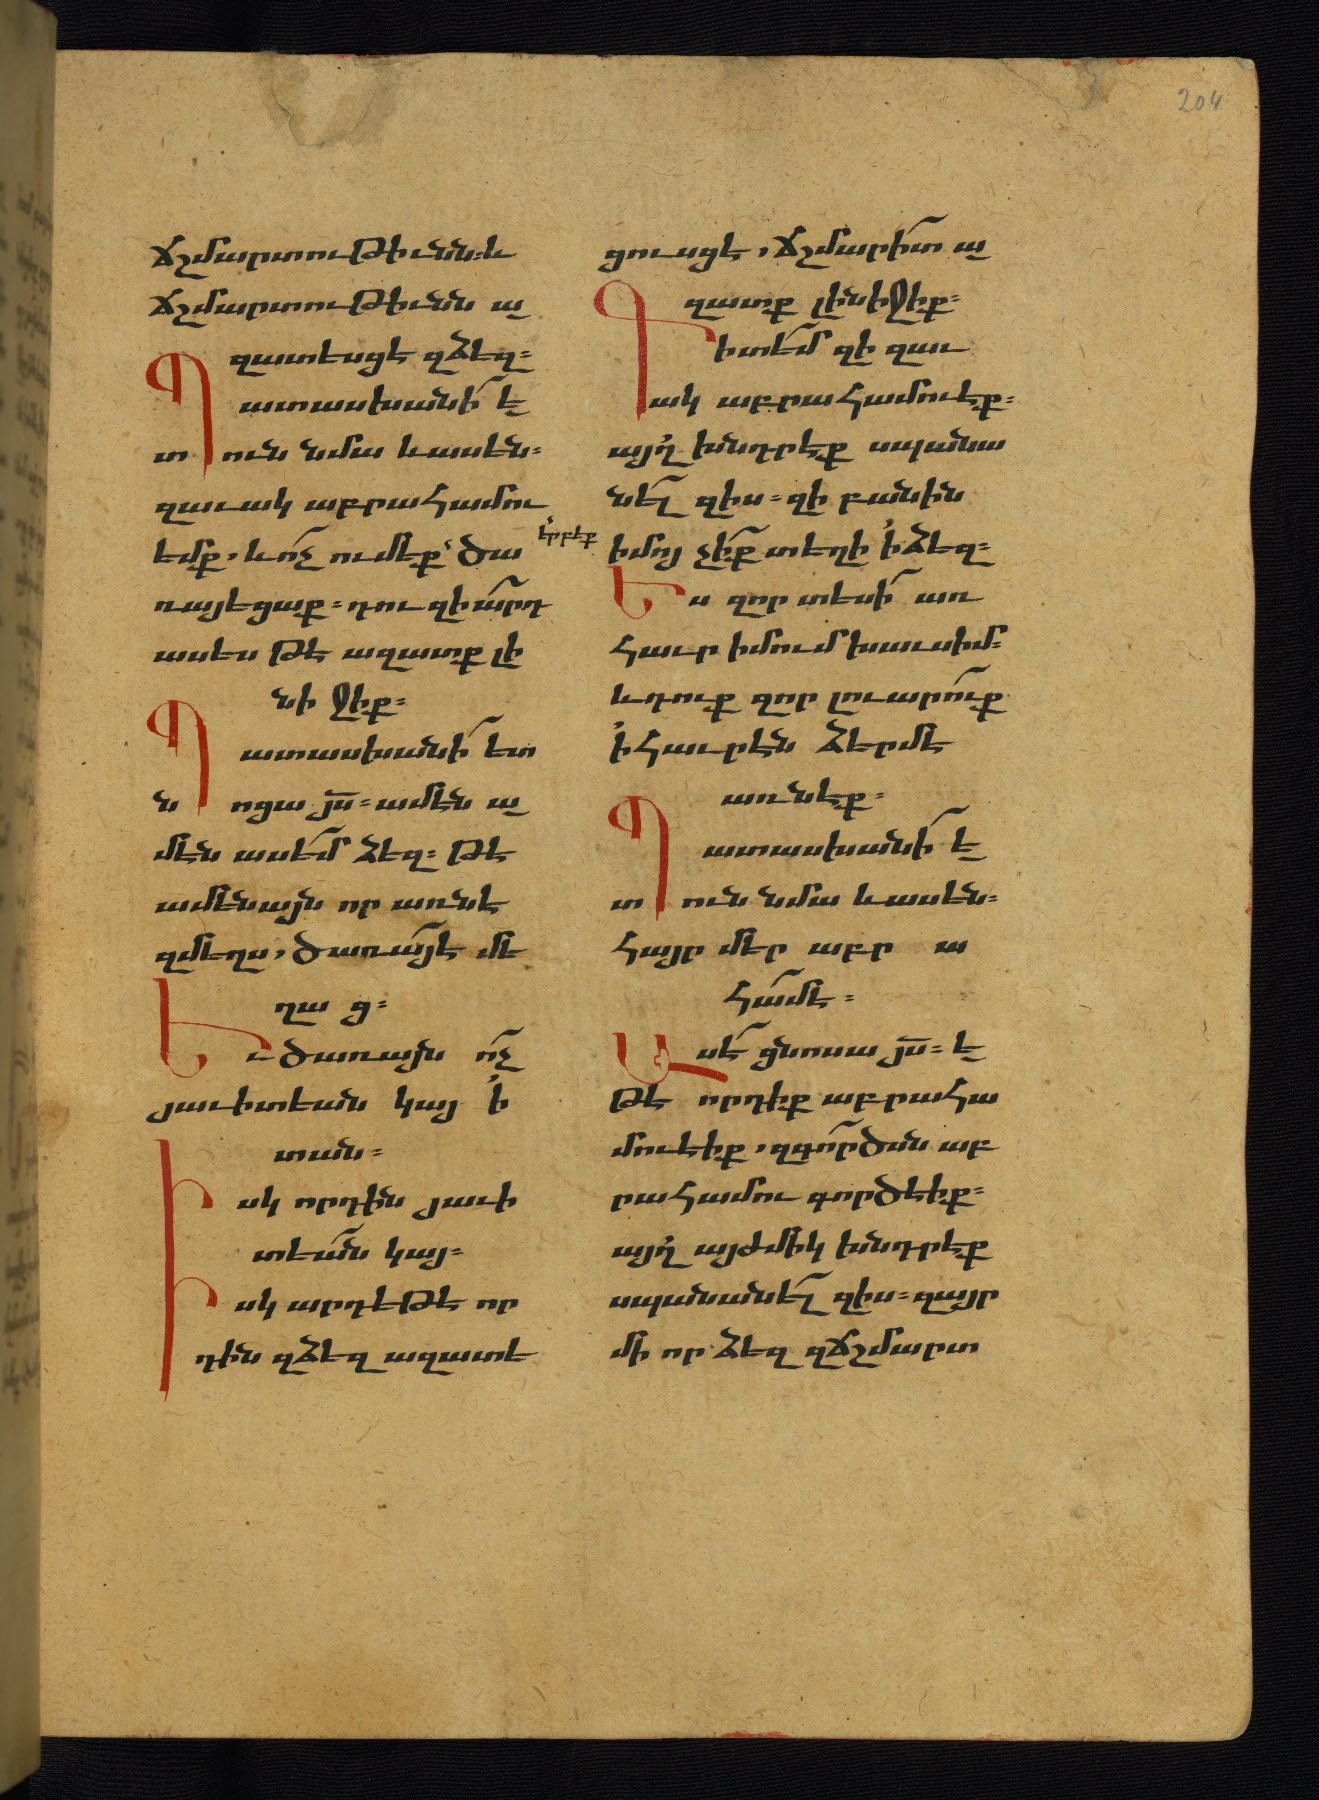 204
ճշմարտութիւնն։ և
ճշմարտութիւնն ա
զատեսցէ զձեզ։
Պատասխանի ե
տուն նմա և ասեն։
զաւակ աբրահամու
եմք, և ոչ ումեք՝ ծա
երբէք
ռայեցաք։ դու զիարդ
ասես թէ ազատք լի
նիջիք։
Պատասխանի ետ
նոցա յս։ ամէն ա
մէն ասեմ ձեզ։ թէ
ամենայն որ առնէ
զմեղս, ծառայէ մե
ղաց։
Եւ ծառայն ոչ
յաւիտեան կայ ՚ի
տան։
Իսկ որդին յաւի
տեան կայ։
Իսկ արդ եթէ որ
դին զձեզ ազատե
ցուսցէ, ճշմարիտ ա
զատք լինիջիք։
Գիտեմ զի զաւ
ակ աբրահամու էք։
այղ խնդրէք սպանա
նել զիս։ զի բանին
իմոյ չիք տեղի ՚ի ձեզ։
Ես զոր տեսի առ
հաւր իմում խաւսիմ։
և դուք զոր լուարուք
՚ի հաւրէն ձերմէ
առնէք։
Պատասխանի ե
տուն նմա և ասեն։
հայր մեր աբր ա
համ է։
Ասէ ցնոսա յս։ ե
թէ որդիք աբրահա
մու էիք, զգործսն աբ
րահամու գործէիք։
այղ այժմիկ խնդրէք
սպանանել զիս։ զայր
մի որ ձեզ զճշմարտ